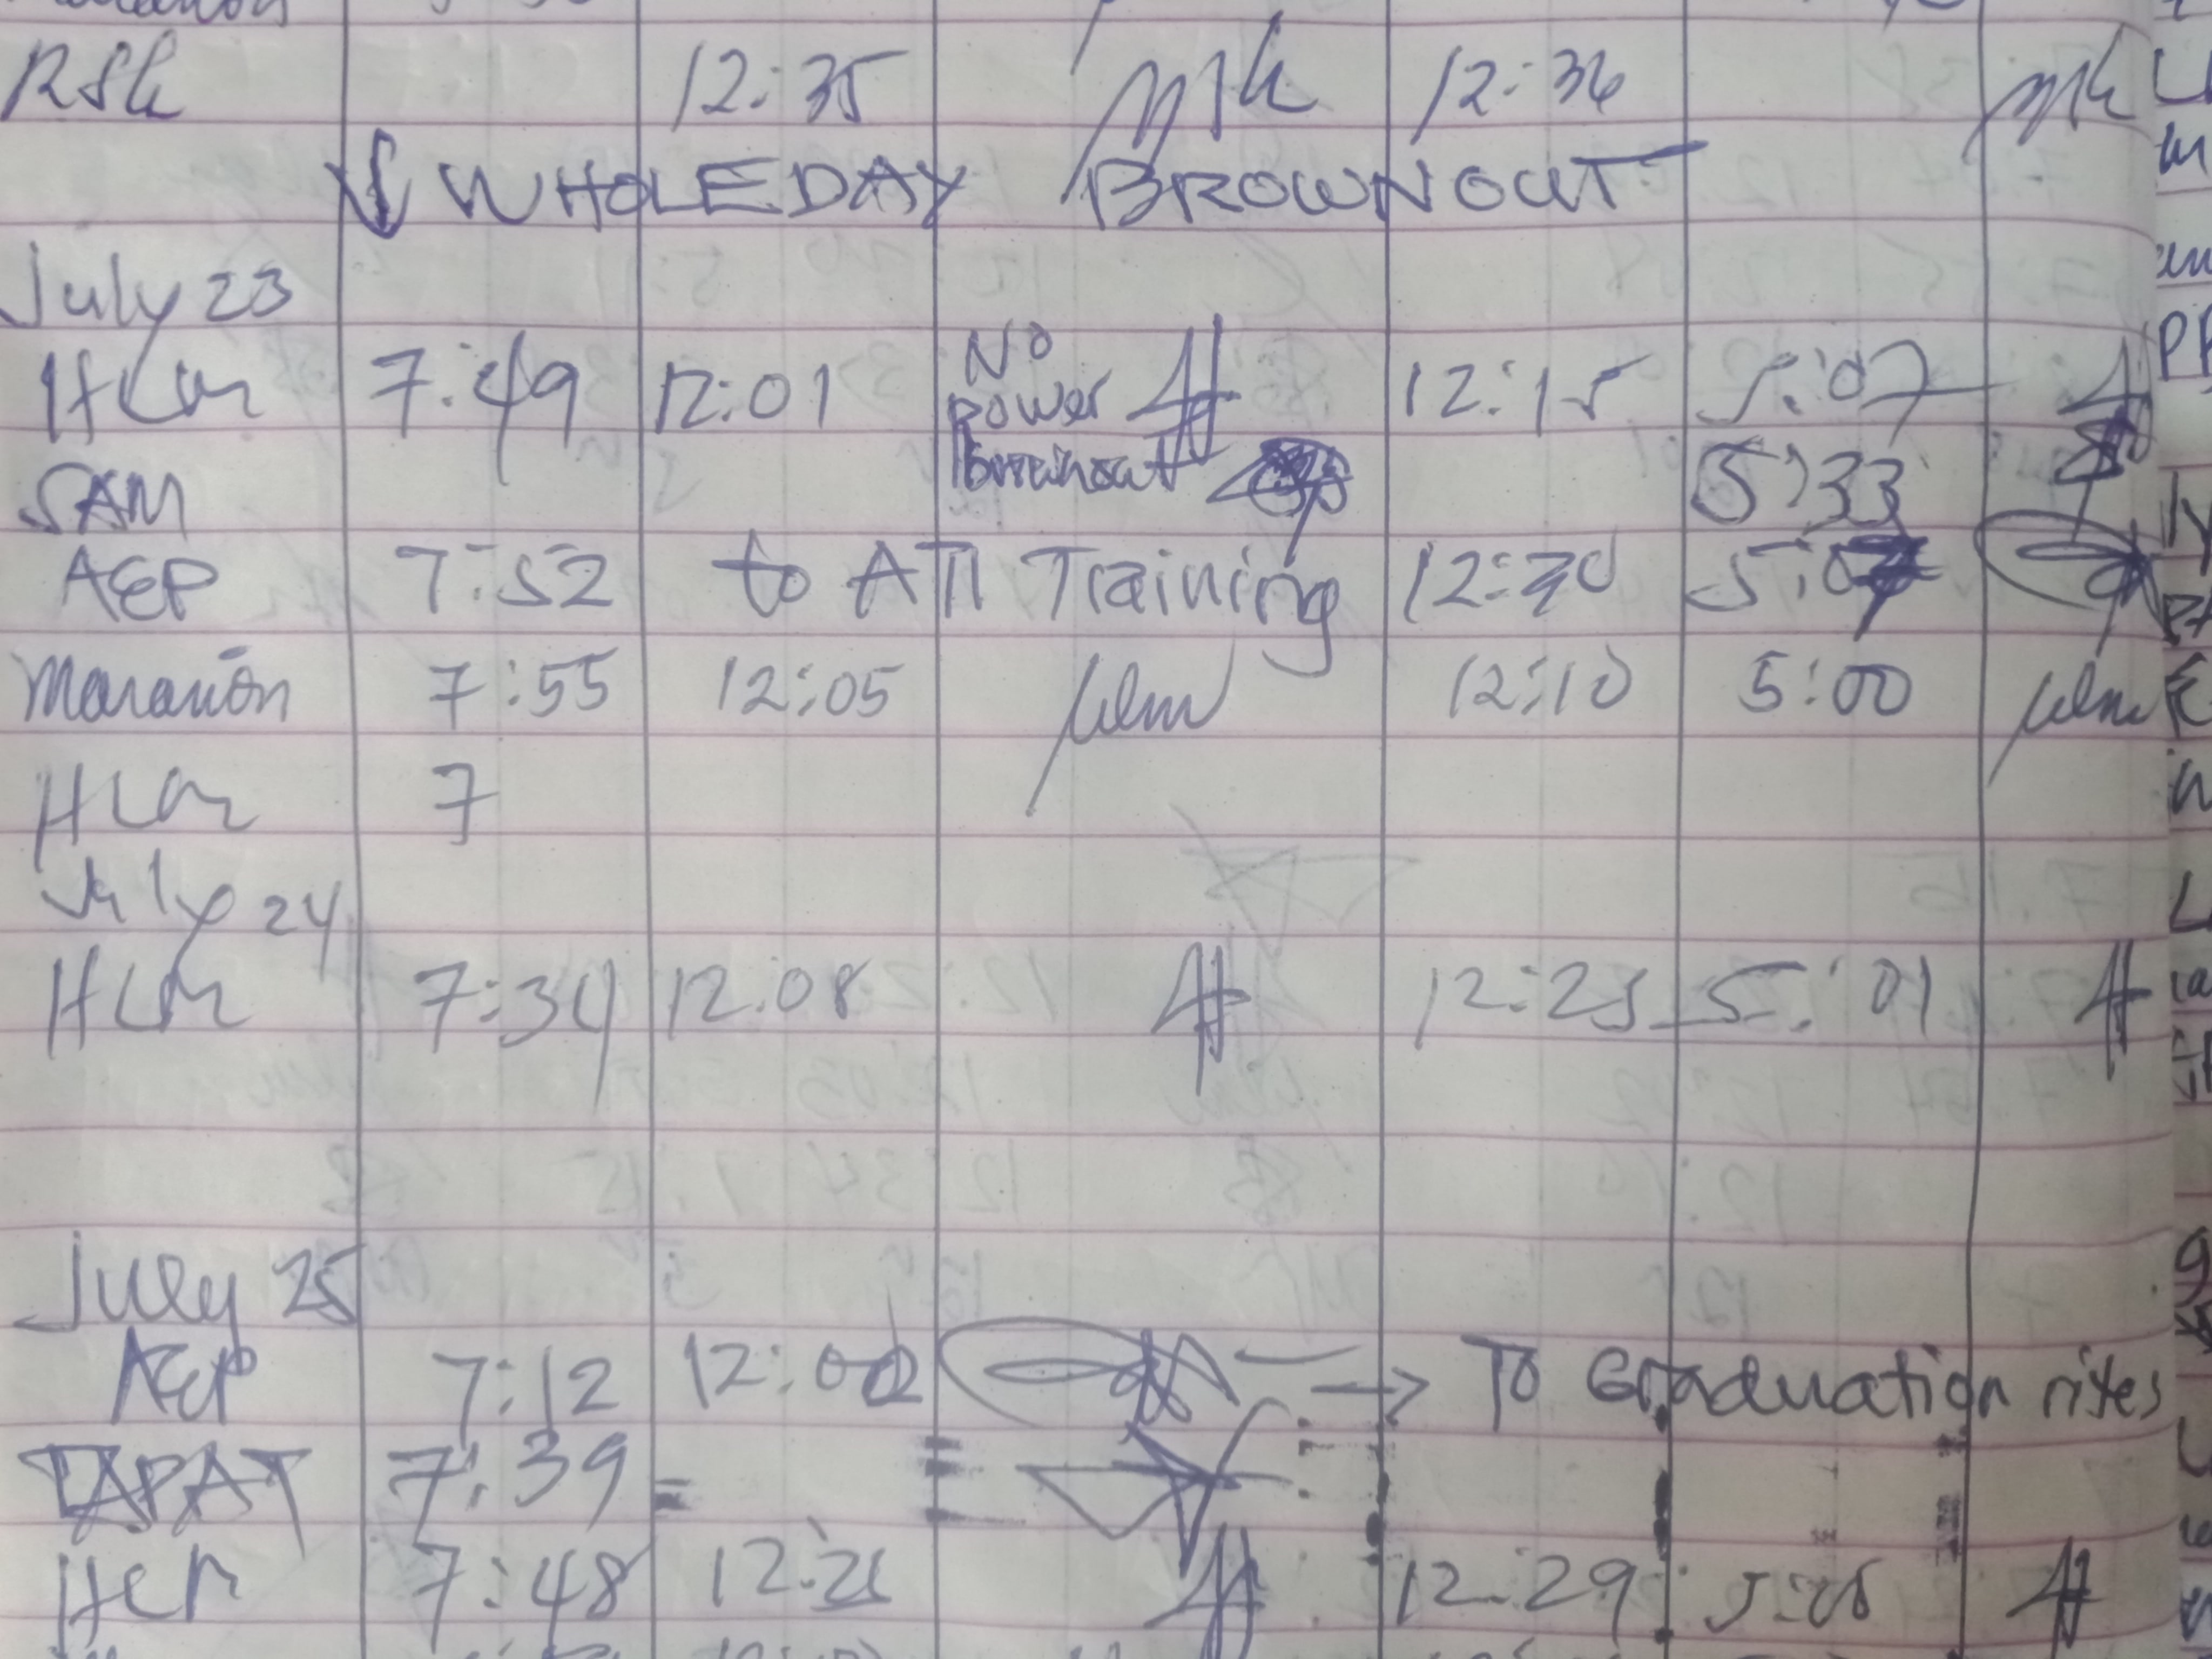 RSh 12:35 12:36
WHOLEDAY BROWNOUT
July 23
HLM 7:49 12:01 No power brownout 12:15 5:07
SAM 5:33
AEP 7:52 to ATI Training 12:30
Marañon 7:55 12:05 12:10 5:00
HLM 7
July 24
HLM 7:34 12:08 12:25 5:01
July 25
AEP 7:12 12:02 → To Graduation rites
TAPAT 7:39
HLM 7:48 12:21 12:29 5:05